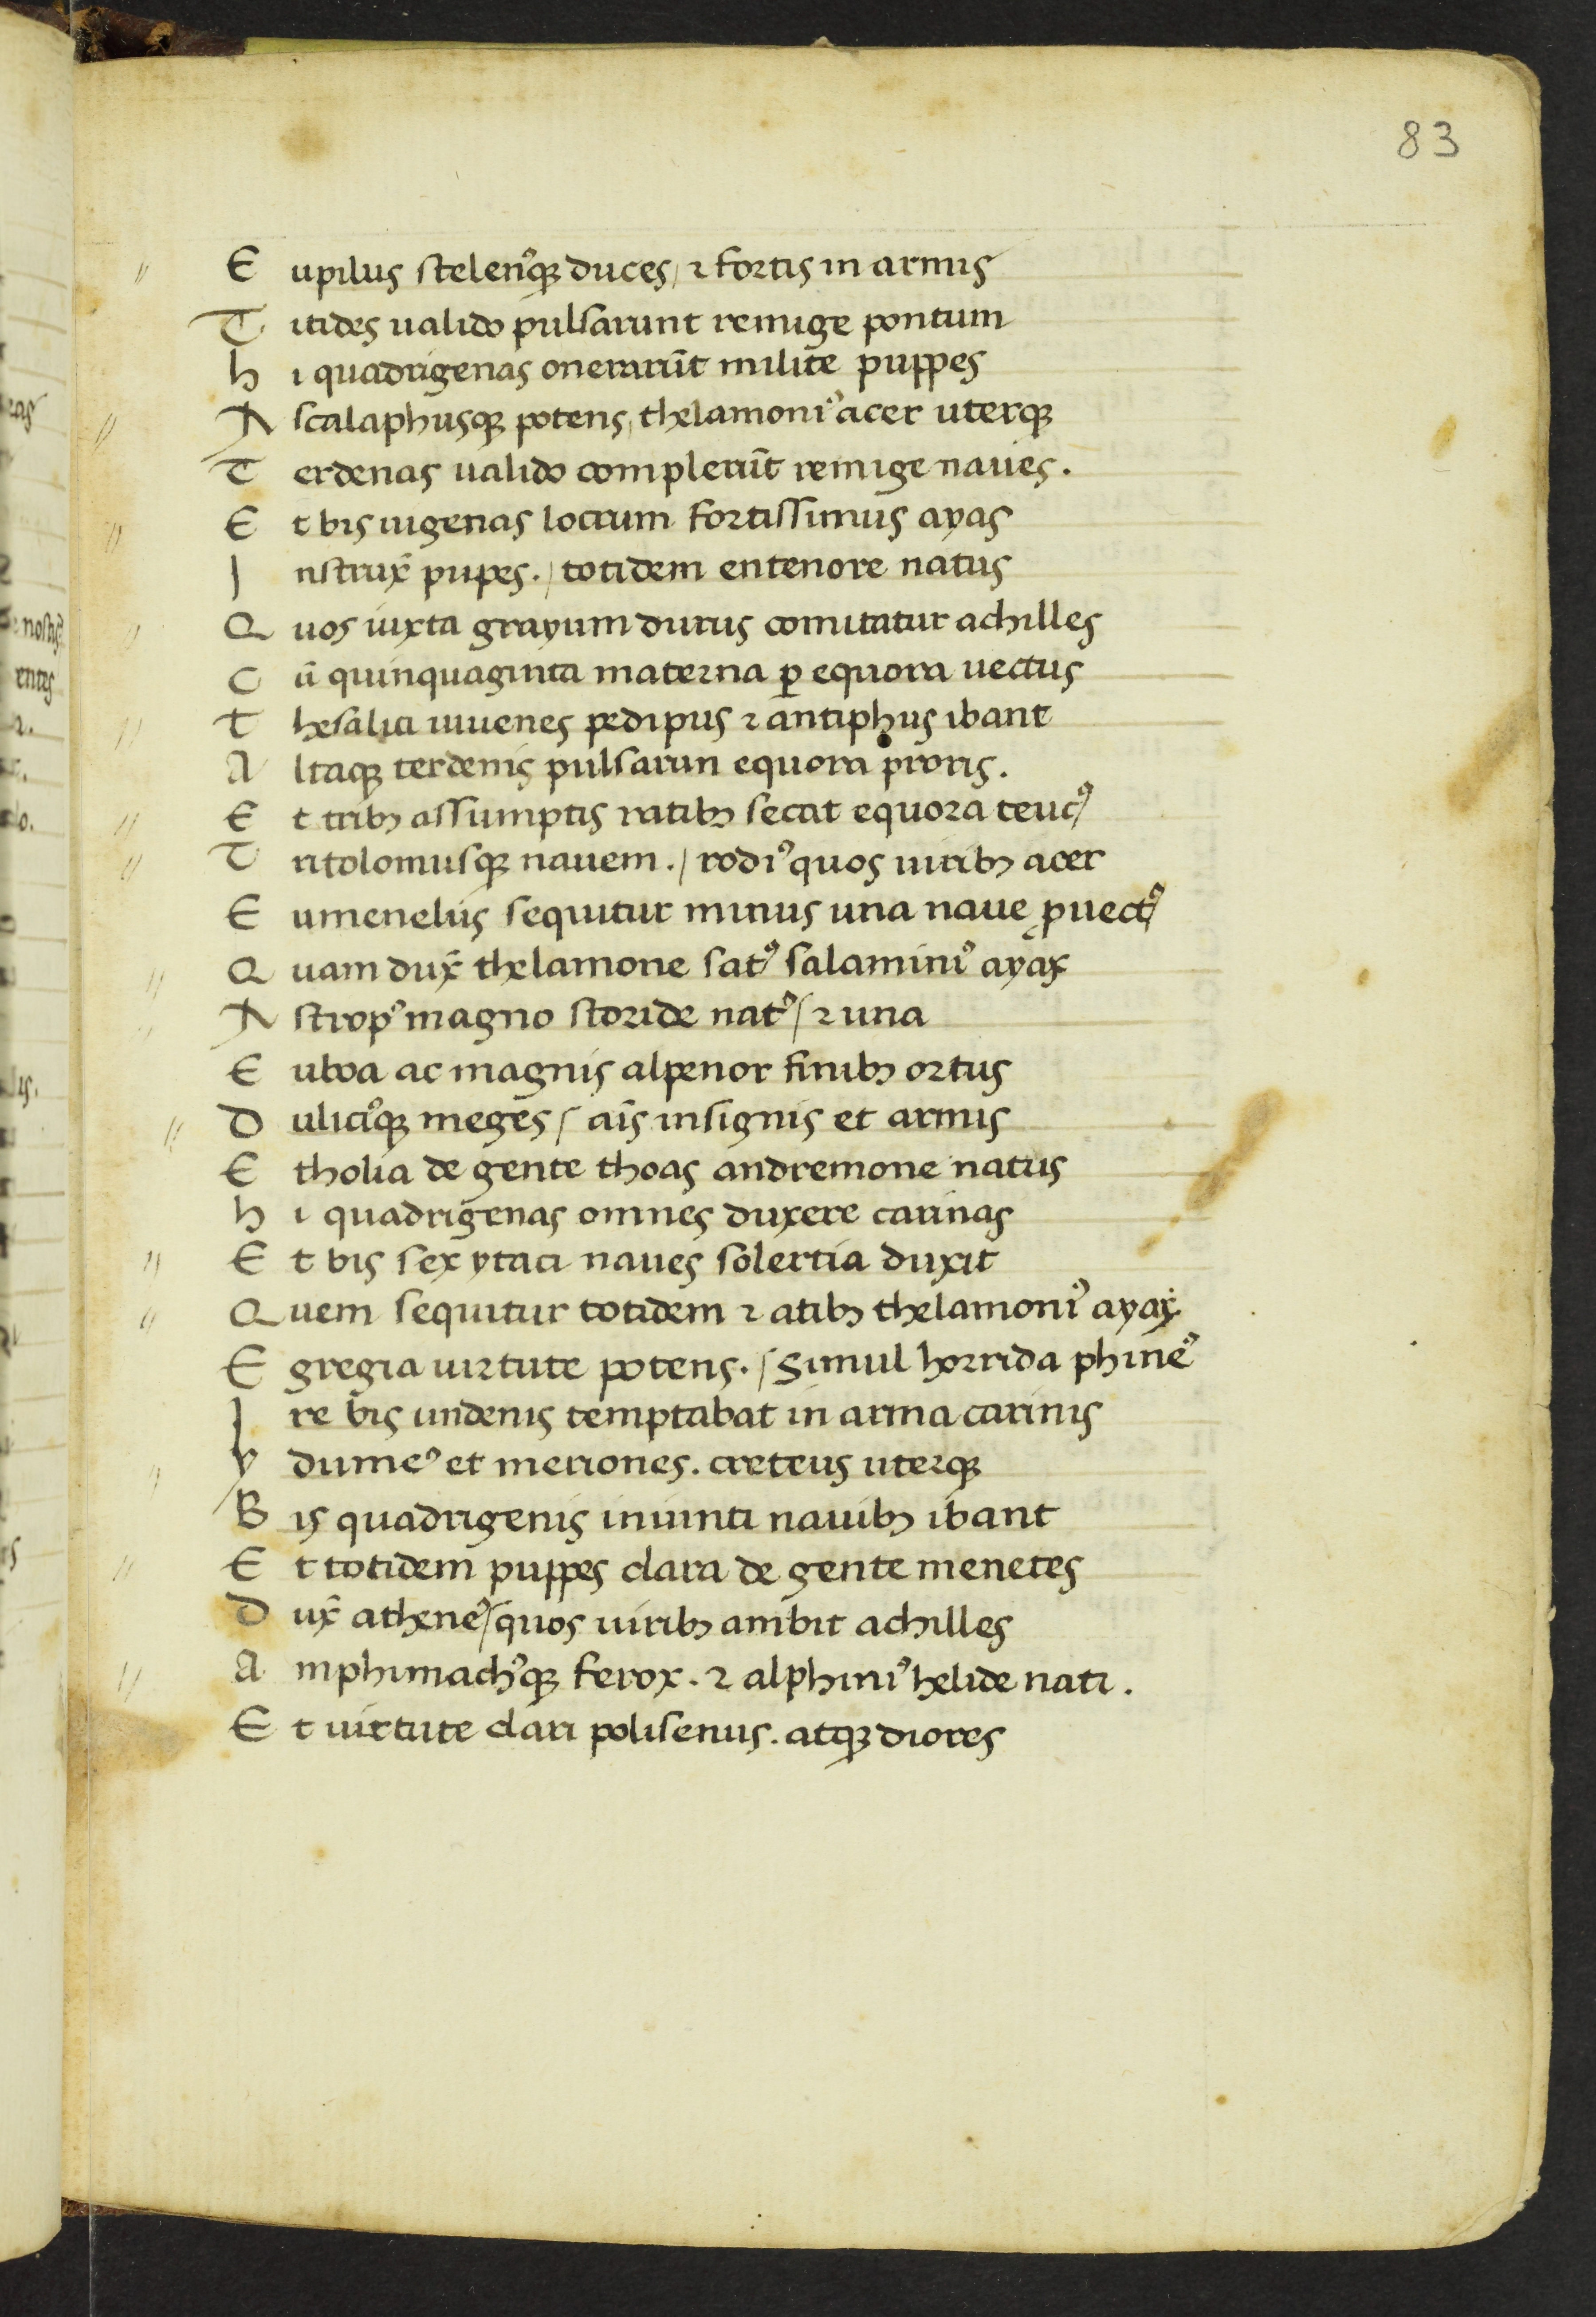 83
E upilus stelenꝰqꝫ duces / ⁊ fortis in armis
T itides ualido pulsarunt remige pontum
h i quadrigenas onerarūt milite puppes
A scalaphusqꝫ potens / thelamoniꝰ acer uterqꝫ
T erdenas ualido complerūt remige naues.
E t bis uigenas locrum fortissimus ayas
I nstrux̄ pupes. / totidem entenore natus
Q uos iuxta grayum durus comitatur achilles
C ū quinquaginta materna ꝑ equora uectus
t hesalici iuuenes pedipus ⁊ antiphus ibant
A ltaqꝫ terdenis pulsarun equora proris.
E t tribꝫ assumptis ratibꝫ secat equora teucꝰ /
T ritolomusqꝫ nauem. / rodiꝰ quos uiribꝫ acer
E umenelus sequitur minus una naue ꝓuectꝰ /
Q uam dux̄ thelamone satꝰ / salaminiꝰ ayax
A stropꝰ magno storide natꝰ / ⁊ una
E uboa ac magnis alpenor finibꝫ ortus
D uliciꝰqꝫ meges / aīs insignis et armis
E tholia de gente thoas andremone natus
h i quadrigenas omnes duxere carinas
E t bis sex ytaci naues solertia duxit
Q uem sequitur totidem ⁊ atibꝫ thelamoniꝰ ayax
E gregia uirtute potens. / Simul horrida phineꝰ
I re bis undenis temptabat in arma carinis
y dumeꝰ et meriones. creteus uterqꝫ
B is quadrigenis iniunti nauibꝫ ibant
E t totidem puppes clara de gente menetes
D ux̄ atheneꝰ / quos uiribꝫ ambit achilles
A mphimachꝰqꝫ ferox. ⁊ alphiniꝰ helide nati.
E t uirtute clari polisenus. atqꝫ diores